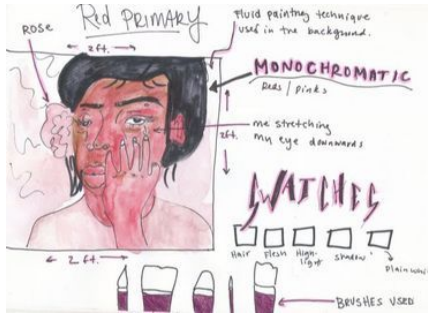 Red PRIMARY
ROSE
2ft.
Fluid painting technique
used in the background.
MONOCHROMATIC
Reds / pinks
2ft.
me stretching
my eye downwards
SWATCHES
Hair
Flesh
High-
light
shadow
Plain
2 ft.
BRUSHES USED